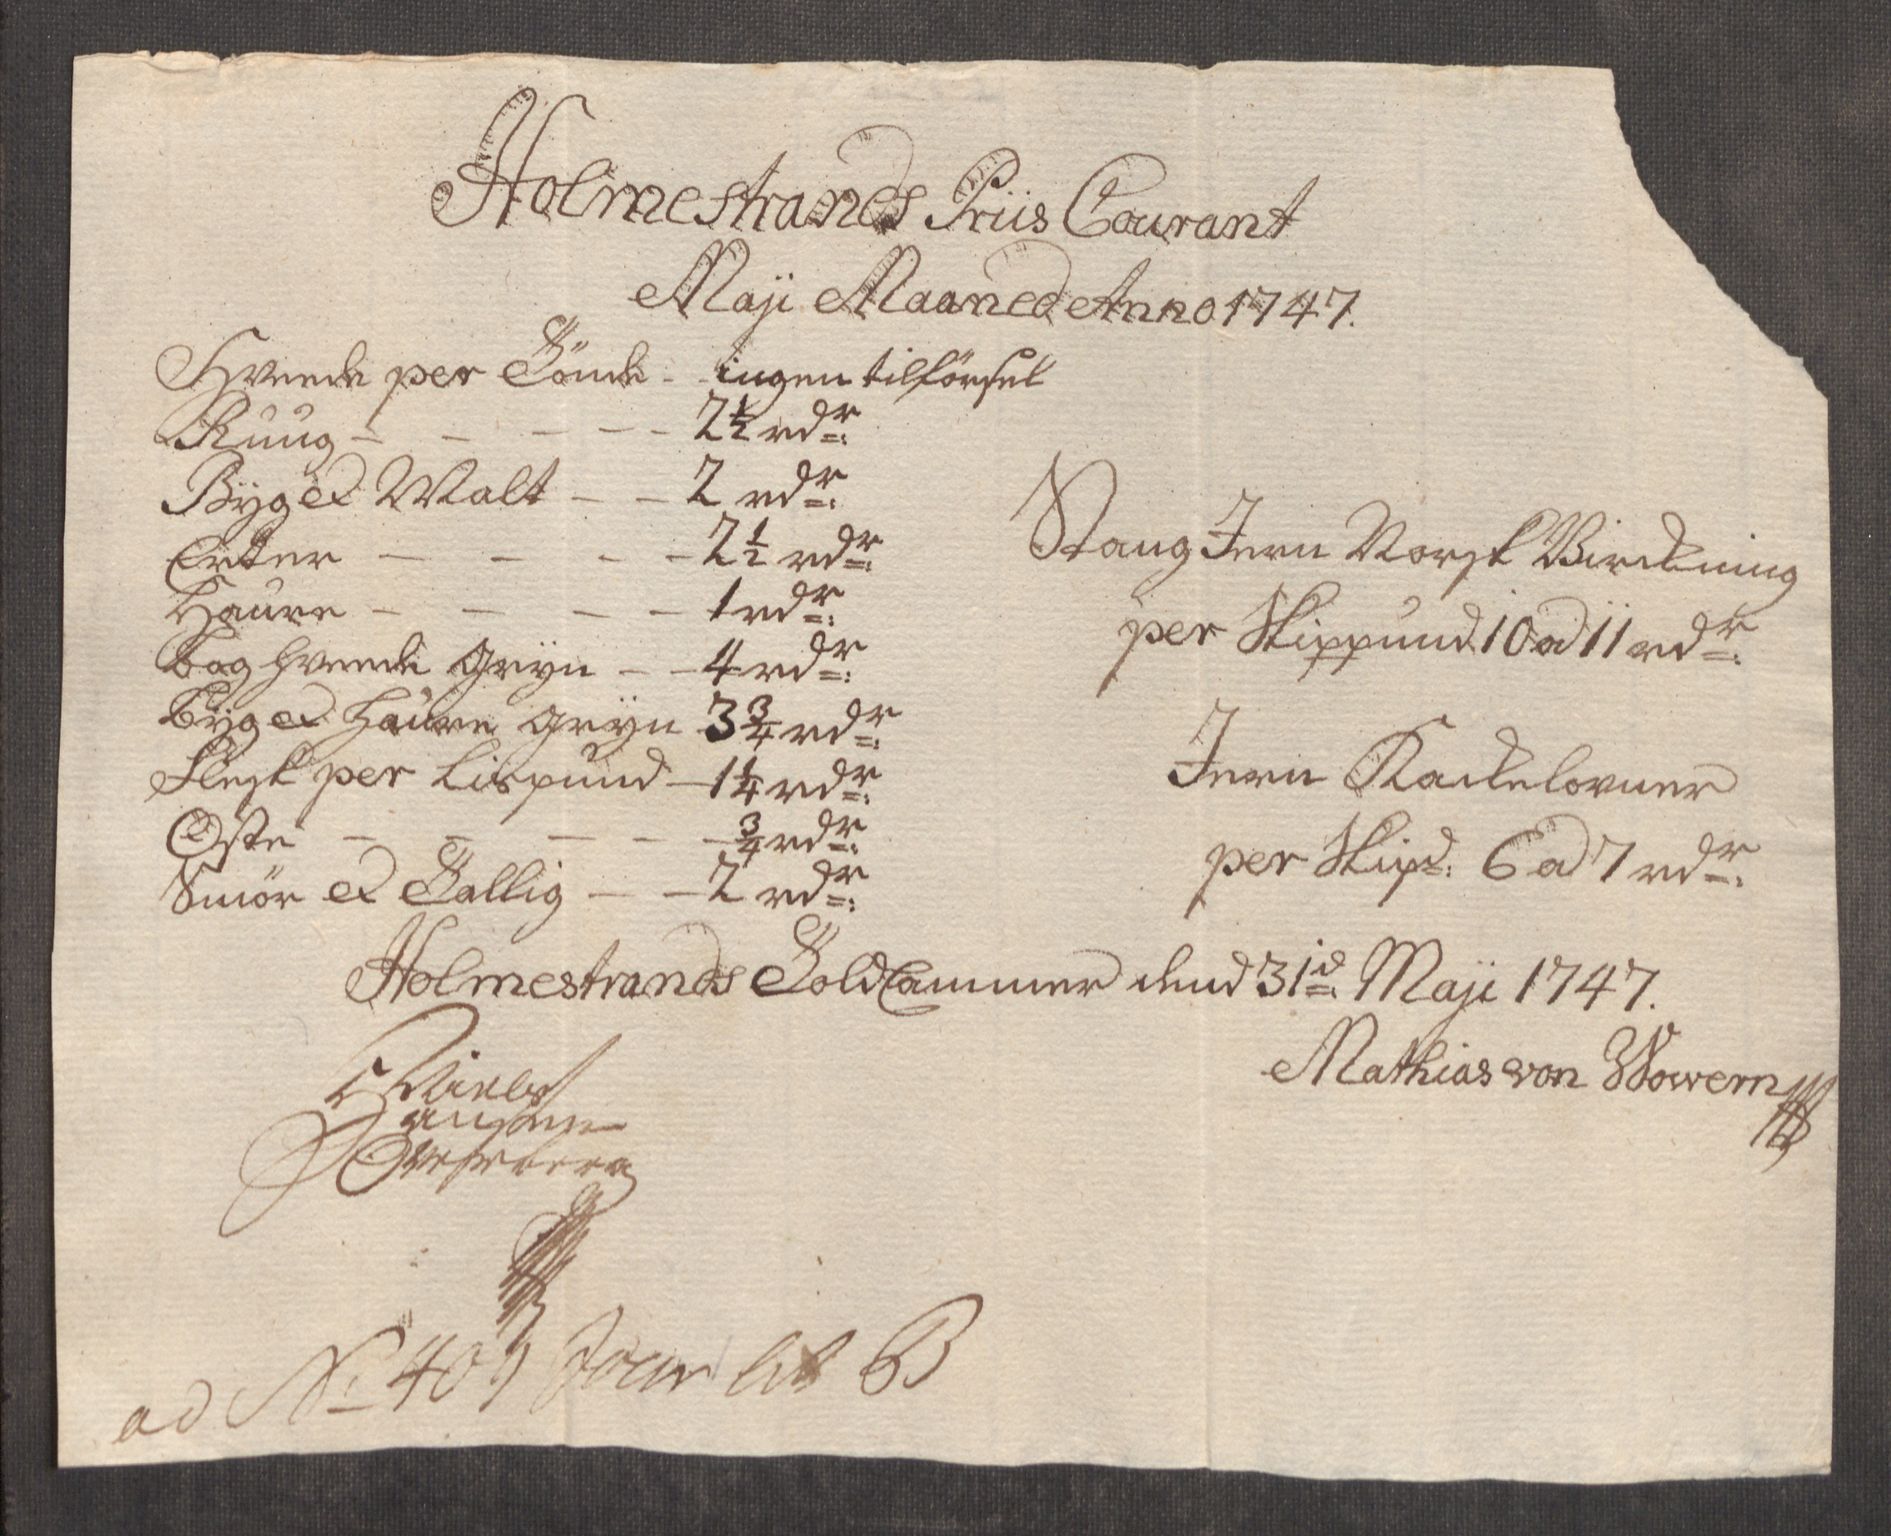 Holmestrands Priis Courant
Maji Maaned Anno 1747.
Hveede per Tönde - ingen tilförsel
Ruug - - - - - 2 1/2 rdr:
Byg et Malt - - 2 rdr:
Erter - - - - 2 1/2 rdr:
Haure - - - - 1 rdr:
Boghveede Gryn - - 4 rdr:
Byg et Haure Gryn 3 3/4 rdr:
Flesk per Lispund - 1 1/4 rdr:
Oste - - - - - 3/4 rdr:
Smör et Tallig - - 2 rdr:
Stang Jern Norsk Virckning
per Skippund 10 a 11 rdr:
Jern Kackelovner
per Skipd: 6 a 7 rdr:
Holmestrands Told Cammer dend 31id Maji 1747.
Mathias von Wowern
Niels
Hansen
ad No 409 Jour lit B